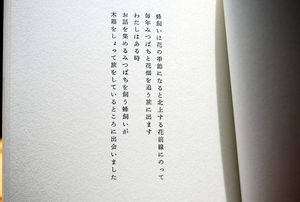 蜂飼いは花の季節になると北上する花前線にのって
毎年みつばちと花畑を追う旅に出ます
わたしはある時
お話を集めるみつばちを飼う蜂飼いが
木箱をしょって旅をしているところに出会いました